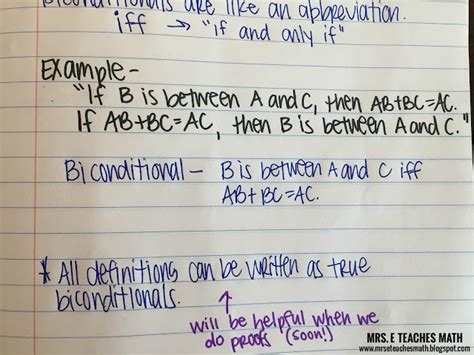 Biconditionals are like an abbreviation.
iff → "if and only if"
Example -
"If B is between A and C, then AB+BC=AC.
If AB+BC=AC, then B is between A and C."
Biconditional - B is between A and C iff
AB+BC=AC.
* All definitions can be written as true
biconditionals.
will be helpful when we
do proofs (soon!)
MRS. E TEACHES MATH
www.mrseteachesmath.blogspot.com